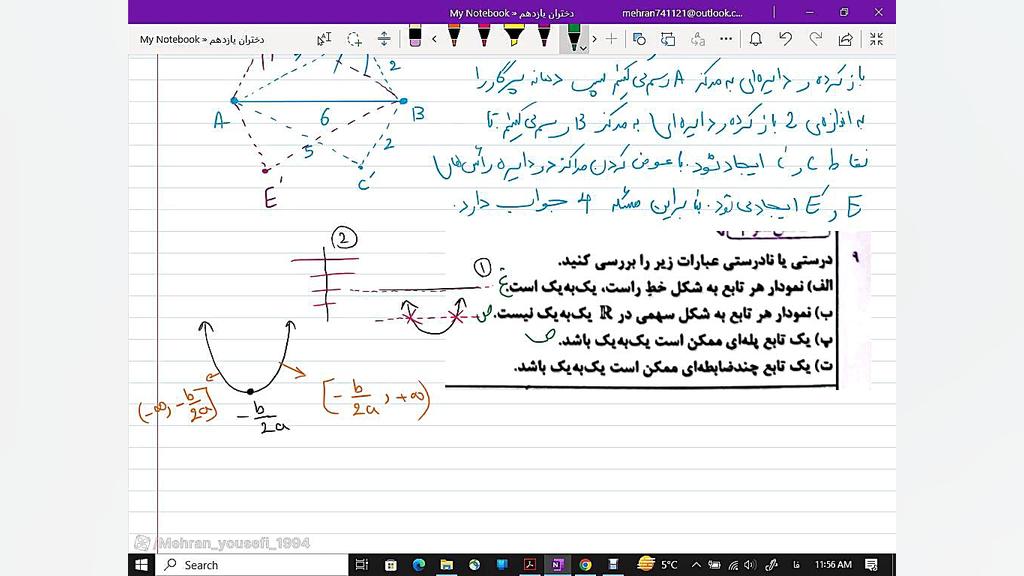 My Notebook » دختران یازدهم
mehran741121@outlook.c...
My Notebook » دختران یازدهم
باز کرده و دایره‌ای به مرکز A رسم می‌کنیم سپس دهانه پرگار را
به اندازه‌ی 2 باز کرده و دایره‌ای به مرکز B رسم می‌کنیم تا
نقاط C و C' ایجاد شود. با عوض کردن مراکز دو دایره رأس‌های
E و E' ایجاد می‌شود. بنابراین مسئله 4 جواب دارد.
2
A
6
B
5
2
E'
C'
۹
درستی یا نادرستی عبارات زیر را بررسی کنید.
الف) نمودار هر تابع به شکل خطِ راست، یک‌به‌یک است. غ
ب) نمودار هر تابع به شکل سهمی در ℝ یک‌به‌یک نیست. ص
پ) یک تابع پله‌ای ممکن است یک‌به‌یک باشد. ص
ت) یک تابع چندضابطه‌ای ممکن است یک‌به‌یک باشد.
2
1
(-∞, -b/2a]
-b/2a
[-b/2a, +∞)
/Mehran_yousefi_1994
Search
5°C
فا
11:56 AM